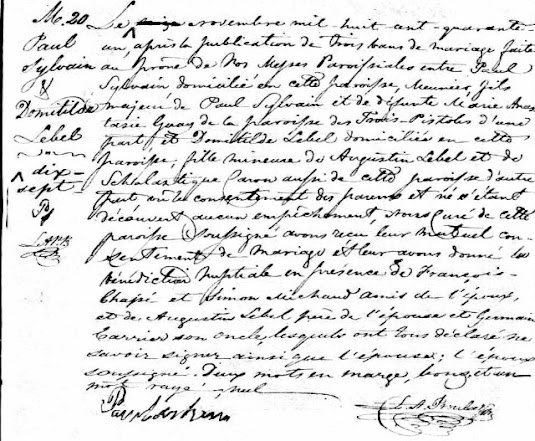 M. 20
Paul
Sylvain
&
Domitilde
Lebel
dix-
sept
Le novembre mil huit cent quarante
un, après la publication de trois bans de mariage faite
au prône de Nos Messes Paroissiales entre Paul
Sylvain domicilié en cette paroisse, Meunier, fils
majeur de Paul Sylvain et de défunte Marie Anas-
tasie Guay de la paroisse des Trois-Pistoles d'une
part, et Domitilde Lebel domiciliée en cette
paroisse, fille mineure de Augustin Lebel et de
Scholastique Caron aussi de cette paroisse d'autre
part, vu le consentement des parens et ne s'étant
découvert aucun empêchement, Nous Curé de cette
paroisse soussigné avons reçu leur mutuel con-
sentement de mariage et leur avons donné la
bénédiction nuptiale en présence de François
Chapé et Simon Michaud amis de l'époux,
et de Augustin Lebel père de l'épouse et Germain
Carrier son oncle, lesquels ont tous déclaré ne
savoir signer ainsi que l'épouse; l'époux
soussigné. Deux mots en marge, bons, et un
mot rayé, nul